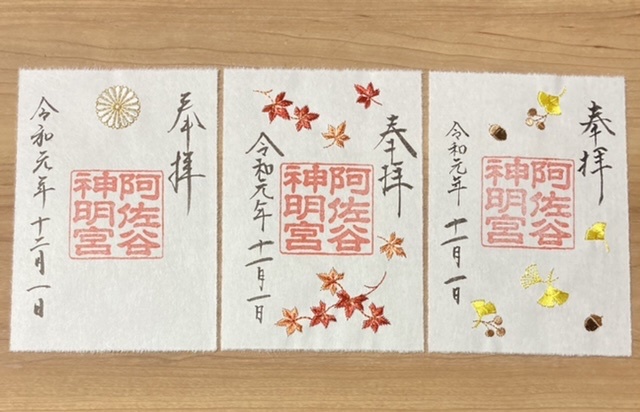 奉拝
阿佐谷
神明宮
令和元年 十二月一日
奉拝
阿佐谷
神明宮
令和元年 十一月一日
奉拝
阿佐谷
神明宮
令和元年 十一月一日